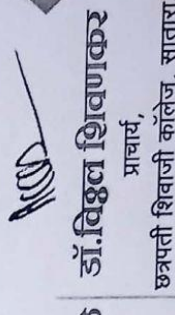 डॉ.विठ्ठल शिवणकर
प्राचार्य,
छत्रपती शिवाजी कॉलेज, सातारा